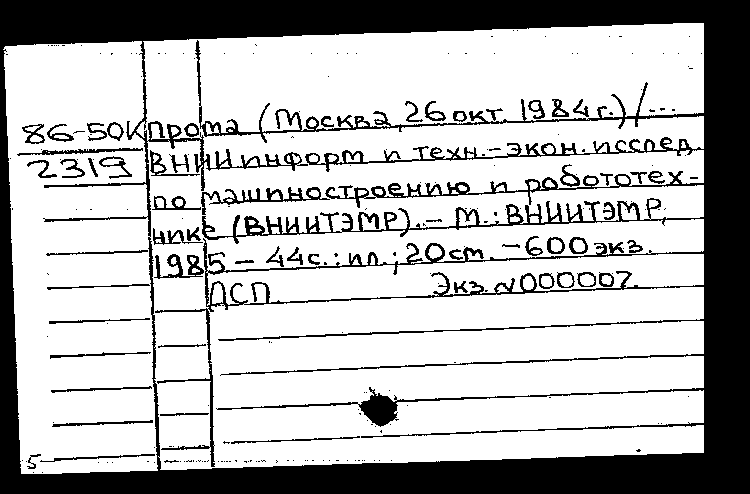 86-50К прома (Москва, 26 окт. 1984 г.) / ...
2319 ВНИИ информ и техн.-экон. исслед.
по машиностроению и робототех-
нике (ВНИИТЭМР). - М.: ВНИИТЭМР,
1985 - 44 с.: ил.; 20 см. - 600 экз.
ДСП. Экз. №000007.
5